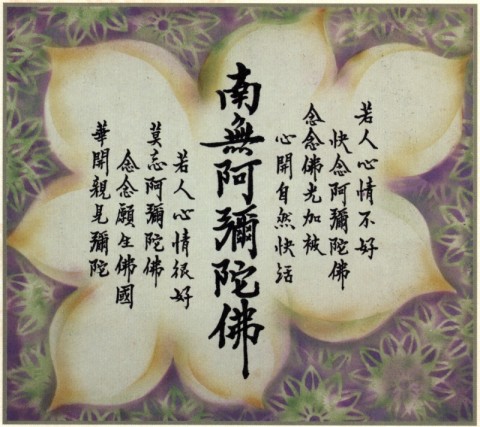 若人心情不好
快念阿彌陀佛
念念佛光加被
心開自然快活
南無阿彌陀佛
若人心情很好
莫忘阿彌陀佛
念念願生佛國
華開親見彌陀